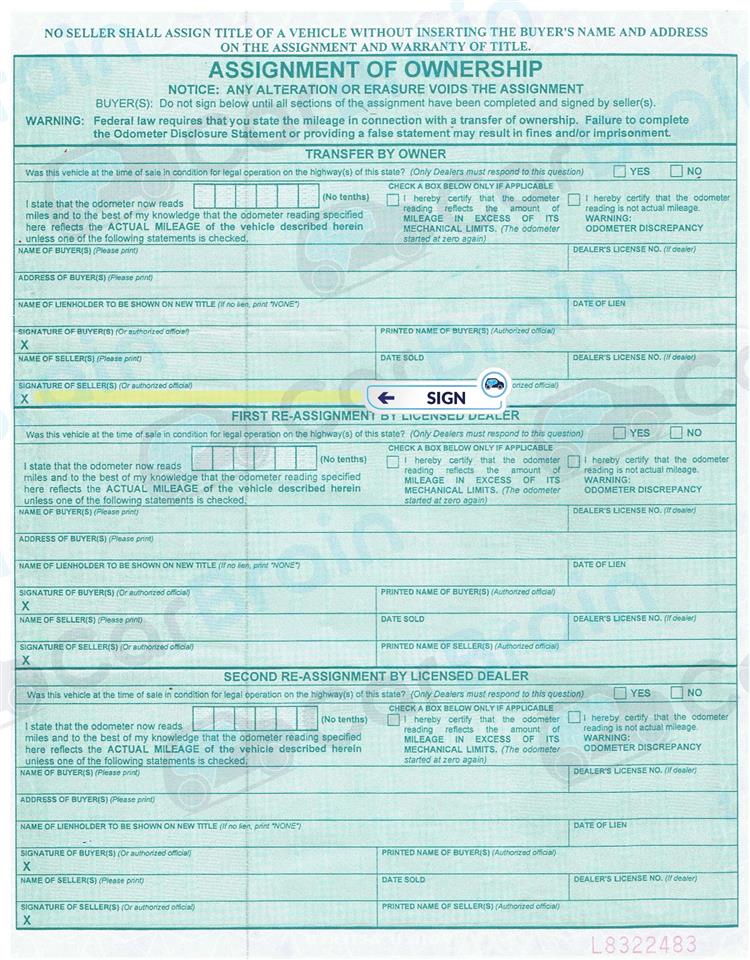 NO SELLER SHALL ASSIGN TITLE OF A VEHICLE WITHOUT INSERTING THE BUYER'S NAME AND ADDRESS
ON THE ASSIGNMENT AND WARRANTY OF TITLE.
ASSIGNMENT OF OWNERSHIP
NOTICE: ANY ALTERATION OR ERASURE VOIDS THE ASSIGNMENT
BUYER(S): Do not sign below until all sections of the assignment have been completed and signed by seller(s).
WARNING: Federal law requires that you state the mileage in connection with a transfer of ownership. Failure to complete
the Odometer Disclosure Statement or providing a false statement may result in fines and/or imprisonment.
TRANSFER BY OWNER
Was this vehicle at the time of sale in condition for legal operation on the highway(s) of this state? (Only Dealers must respond to this question) YES NO
I state that the odometer now reads (No tenths)
miles and to the best of my knowledge that the odometer reading specified
here reflects the ACTUAL MILEAGE of the vehicle described herein
unless one of the following statements is checked.
CHECK A BOX BELOW ONLY IF APPLICABLE
I hereby certify that the odometer
reading reflects the amount of
MILEAGE IN EXCESS OF ITS
MECHANICAL LIMITS. (The odometer
started at zero again)
I hereby certify that the odometer
reading is not actual mileage.
WARNING:
ODOMETER DISCREPANCY
NAME OF BUYER(S) (Please print) DEALER'S LICENSE NO. (If dealer)
ADDRESS OF BUYER(S) (Please print)
NAME OF LIENHOLDER TO BE SHOWN ON NEW TITLE (If no lien, print "NONE") DATE OF LIEN
SIGNATURE OF BUYER(S) (Or authorized official) PRINTED NAME OF BUYER(S) (Authorized official)
X
NAME OF SELLER(S) (Please print) DATE SOLD DEALER'S LICENSE NO. (If dealer)
SIGNATURE OF SELLER(S) (Or authorized official) orized official)
X
← SIGN
FIRST RE-ASSIGNMENT BY LICENSED DEALER
Was this vehicle at the time of sale in condition for legal operation on the highway(s) of this state? (Only Dealers must respond to this question) YES NO
I state that the odometer now reads (No tenths)
miles and to the best of my knowledge that the odometer reading specified
here reflects the ACTUAL MILEAGE of the vehicle described herein
unless one of the following statements is checked.
CHECK A BOX BELOW ONLY IF APPLICABLE
I hereby certify that the odometer
reading reflects the amount of
MILEAGE IN EXCESS OF ITS
MECHANICAL LIMITS. (The odometer
started at zero again)
I hereby certify that the odometer
reading is not actual mileage.
WARNING:
ODOMETER DISCREPANCY
NAME OF BUYER(S) (Please print) DEALER'S LICENSE NO. (If dealer)
ADDRESS OF BUYER(S) (Please print)
NAME OF LIENHOLDER TO BE SHOWN ON NEW TITLE (If no lien, print "NONE") DATE OF LIEN
SIGNATURE OF BUYER(S) (Or authorized official) PRINTED NAME OF BUYER(S) (Authorized official)
X
NAME OF SELLER(S) (Please print) DATE SOLD DEALER'S LICENSE NO. (If dealer)
SIGNATURE OF SELLER(S) (Or authorized official) PRINTED NAME OF SELLER(S) (Authorized official)
X
SECOND RE-ASSIGNMENT BY LICENSED DEALER
Was this vehicle at the time of sale in condition for legal operation on the highway(s) of this state? (Only Dealers must respond to this question) YES NO
I state that the odometer now reads (No tenths)
miles and to the best of my knowledge that the odometer reading specified
here reflects the ACTUAL MILEAGE of the vehicle described herein
unless one of the following statements is checked.
CHECK A BOX BELOW ONLY IF APPLICABLE
I hereby certify that the odometer
reading reflects the amount of
MILEAGE IN EXCESS OF ITS
MECHANICAL LIMITS. (The odometer
started at zero again)
I hereby certify that the odometer
reading is not actual mileage.
WARNING:
ODOMETER DISCREPANCY
NAME OF BUYER(S) (Please print) DEALER'S LICENSE NO. (If dealer)
ADDRESS OF BUYER(S) (Please print)
NAME OF LIENHOLDER TO BE SHOWN ON NEW TITLE (If no lien, print "NONE") DATE OF LIEN
SIGNATURE OF BUYER(S) (Or authorized official) PRINTED NAME OF BUYER(S) (Authorized official)
X
NAME OF SELLER(S) (Please print) DATE SOLD DEALER'S LICENSE NO. (If dealer)
SIGNATURE OF SELLER(S) (Or authorized official) PRINTED NAME OF SELLER(S) (Authorized official)
X
L8322483
carBrain